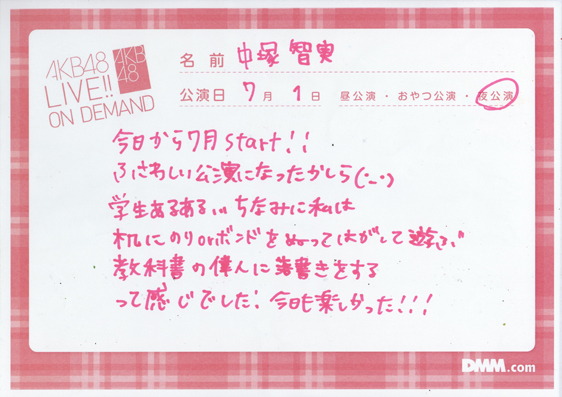 AKB48
LIVE!!
ON DEMAND
AKB
48
名前 中塚智実
公演日 7月1日 昼公演・おやつ公演・夜公演
今日から7月start!!
ふさわしい公演になったかしら(・_・)
学生あるある... ちなみに私は
机にのりorボンドをぬってはがして遊ぶ
教科書の偉人に落書きをする
って感じでした! 今日も楽しかった!!!
DMM.com